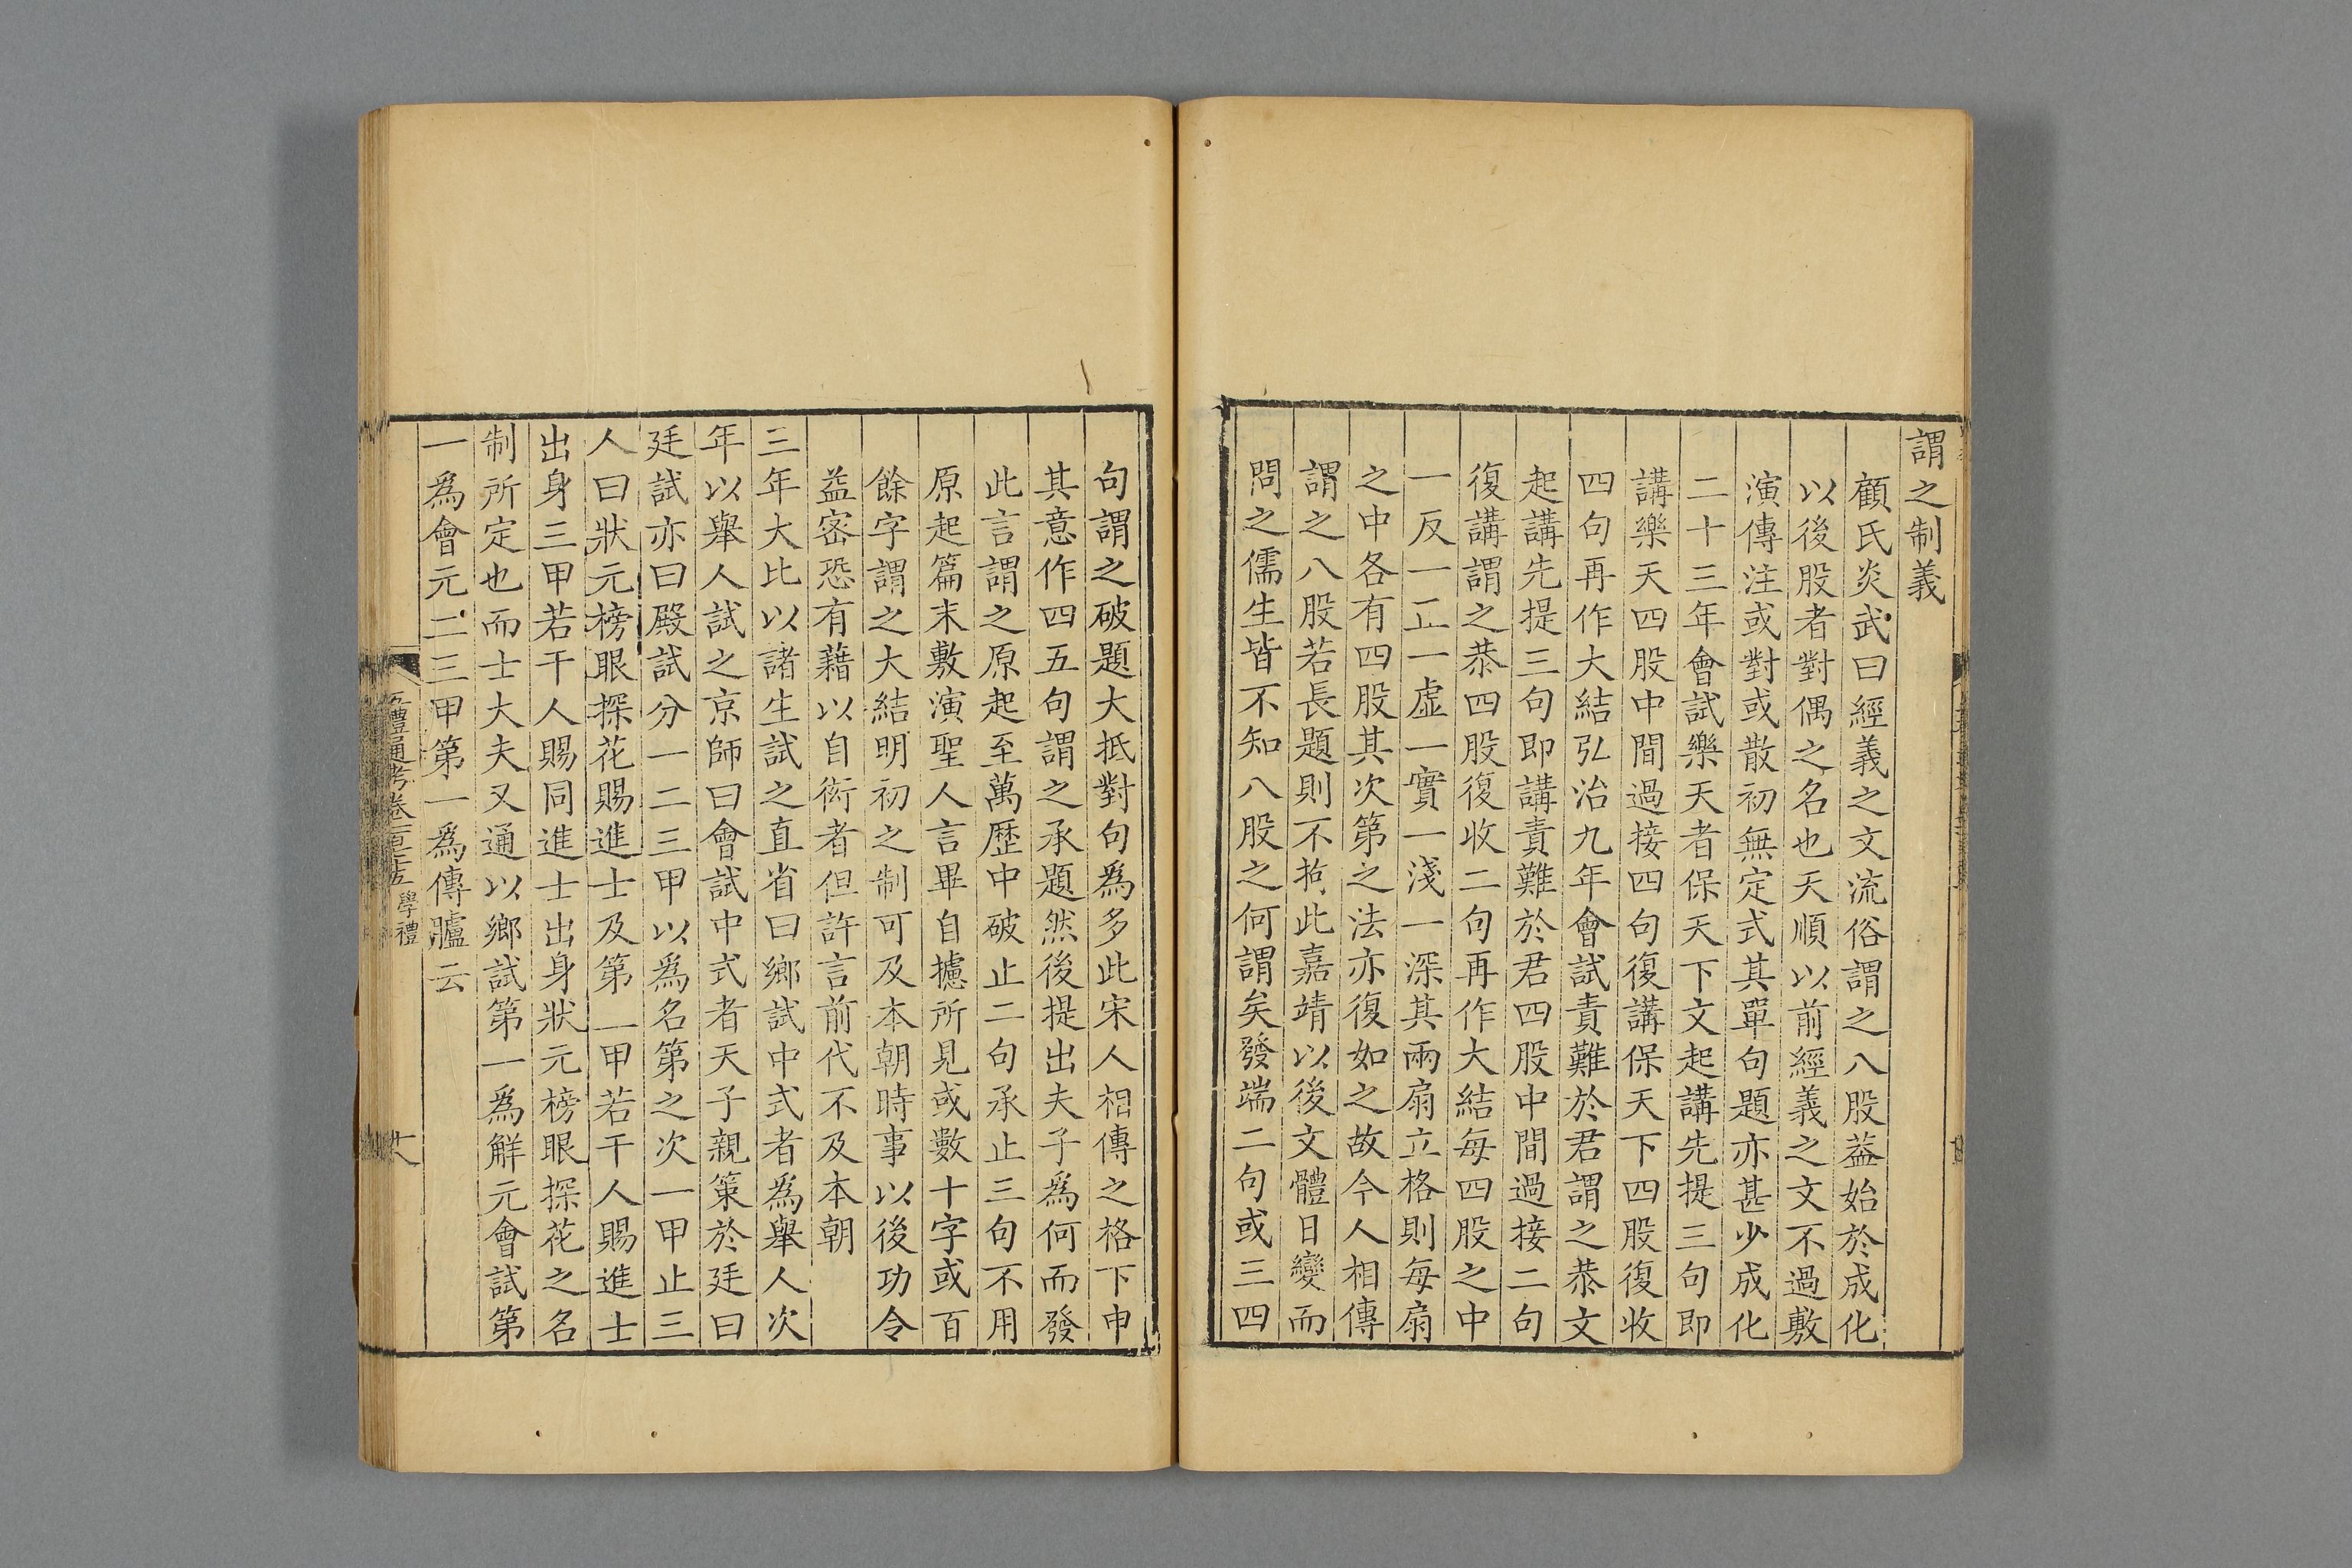 謂之制義
顧氏炎武曰經義之文流俗謂之八股葢始於成化
以後股者對偶之名也天順以前經義之文不過敷
演傳注或對或散初無定式其單句題亦甚少成化
二十三年會試樂天者保天下文起講先提三句即
講樂天四股中間過接四句復講保天下四股復收
四句再作大結弘治九年會試責難於君謂之恭文
起講先提三句即講責難於君四股中間過接二句
復講謂之恭四股復收二句再作大結每四股之中
一反一正一虛一實一淺一深其兩扇立格則每扇
之中各有四股其次第之法亦復如之故今人相傳
謂之八股若長題則不拘此嘉靖以後文體日變而
問之儒生皆不知八股之何謂矣發端二句或三四
句謂之破題大抵對句為多此宋人相傳之格下申
其意作四五句謂之承題然後提出夫子為何而發
此言謂之原起至萬歷中破止二句承止三句不用
原起篇末敷演聖人言畢自攄所見或數十字或百
餘字謂之大結明初之制可及本朝時事以後功令
益密恐有藉以自衒者但許言前代不及本朝
三年大比以諸生試之直省曰鄉試中式者為舉人次
年以舉人試之京師曰會試中式者天子親策於廷曰
廷試亦曰殿試分一二三甲以為名第之次一甲止三
人曰狀元榜眼探花賜進士及第二甲若干人賜進士
出身三甲若干人賜同進士出身狀元榜眼探花之名
制所定也而士大夫又通以鄉試第一為解元會試第
一為會元二三甲第一為傳臚云
五禮通考卷一百七十五 學禮